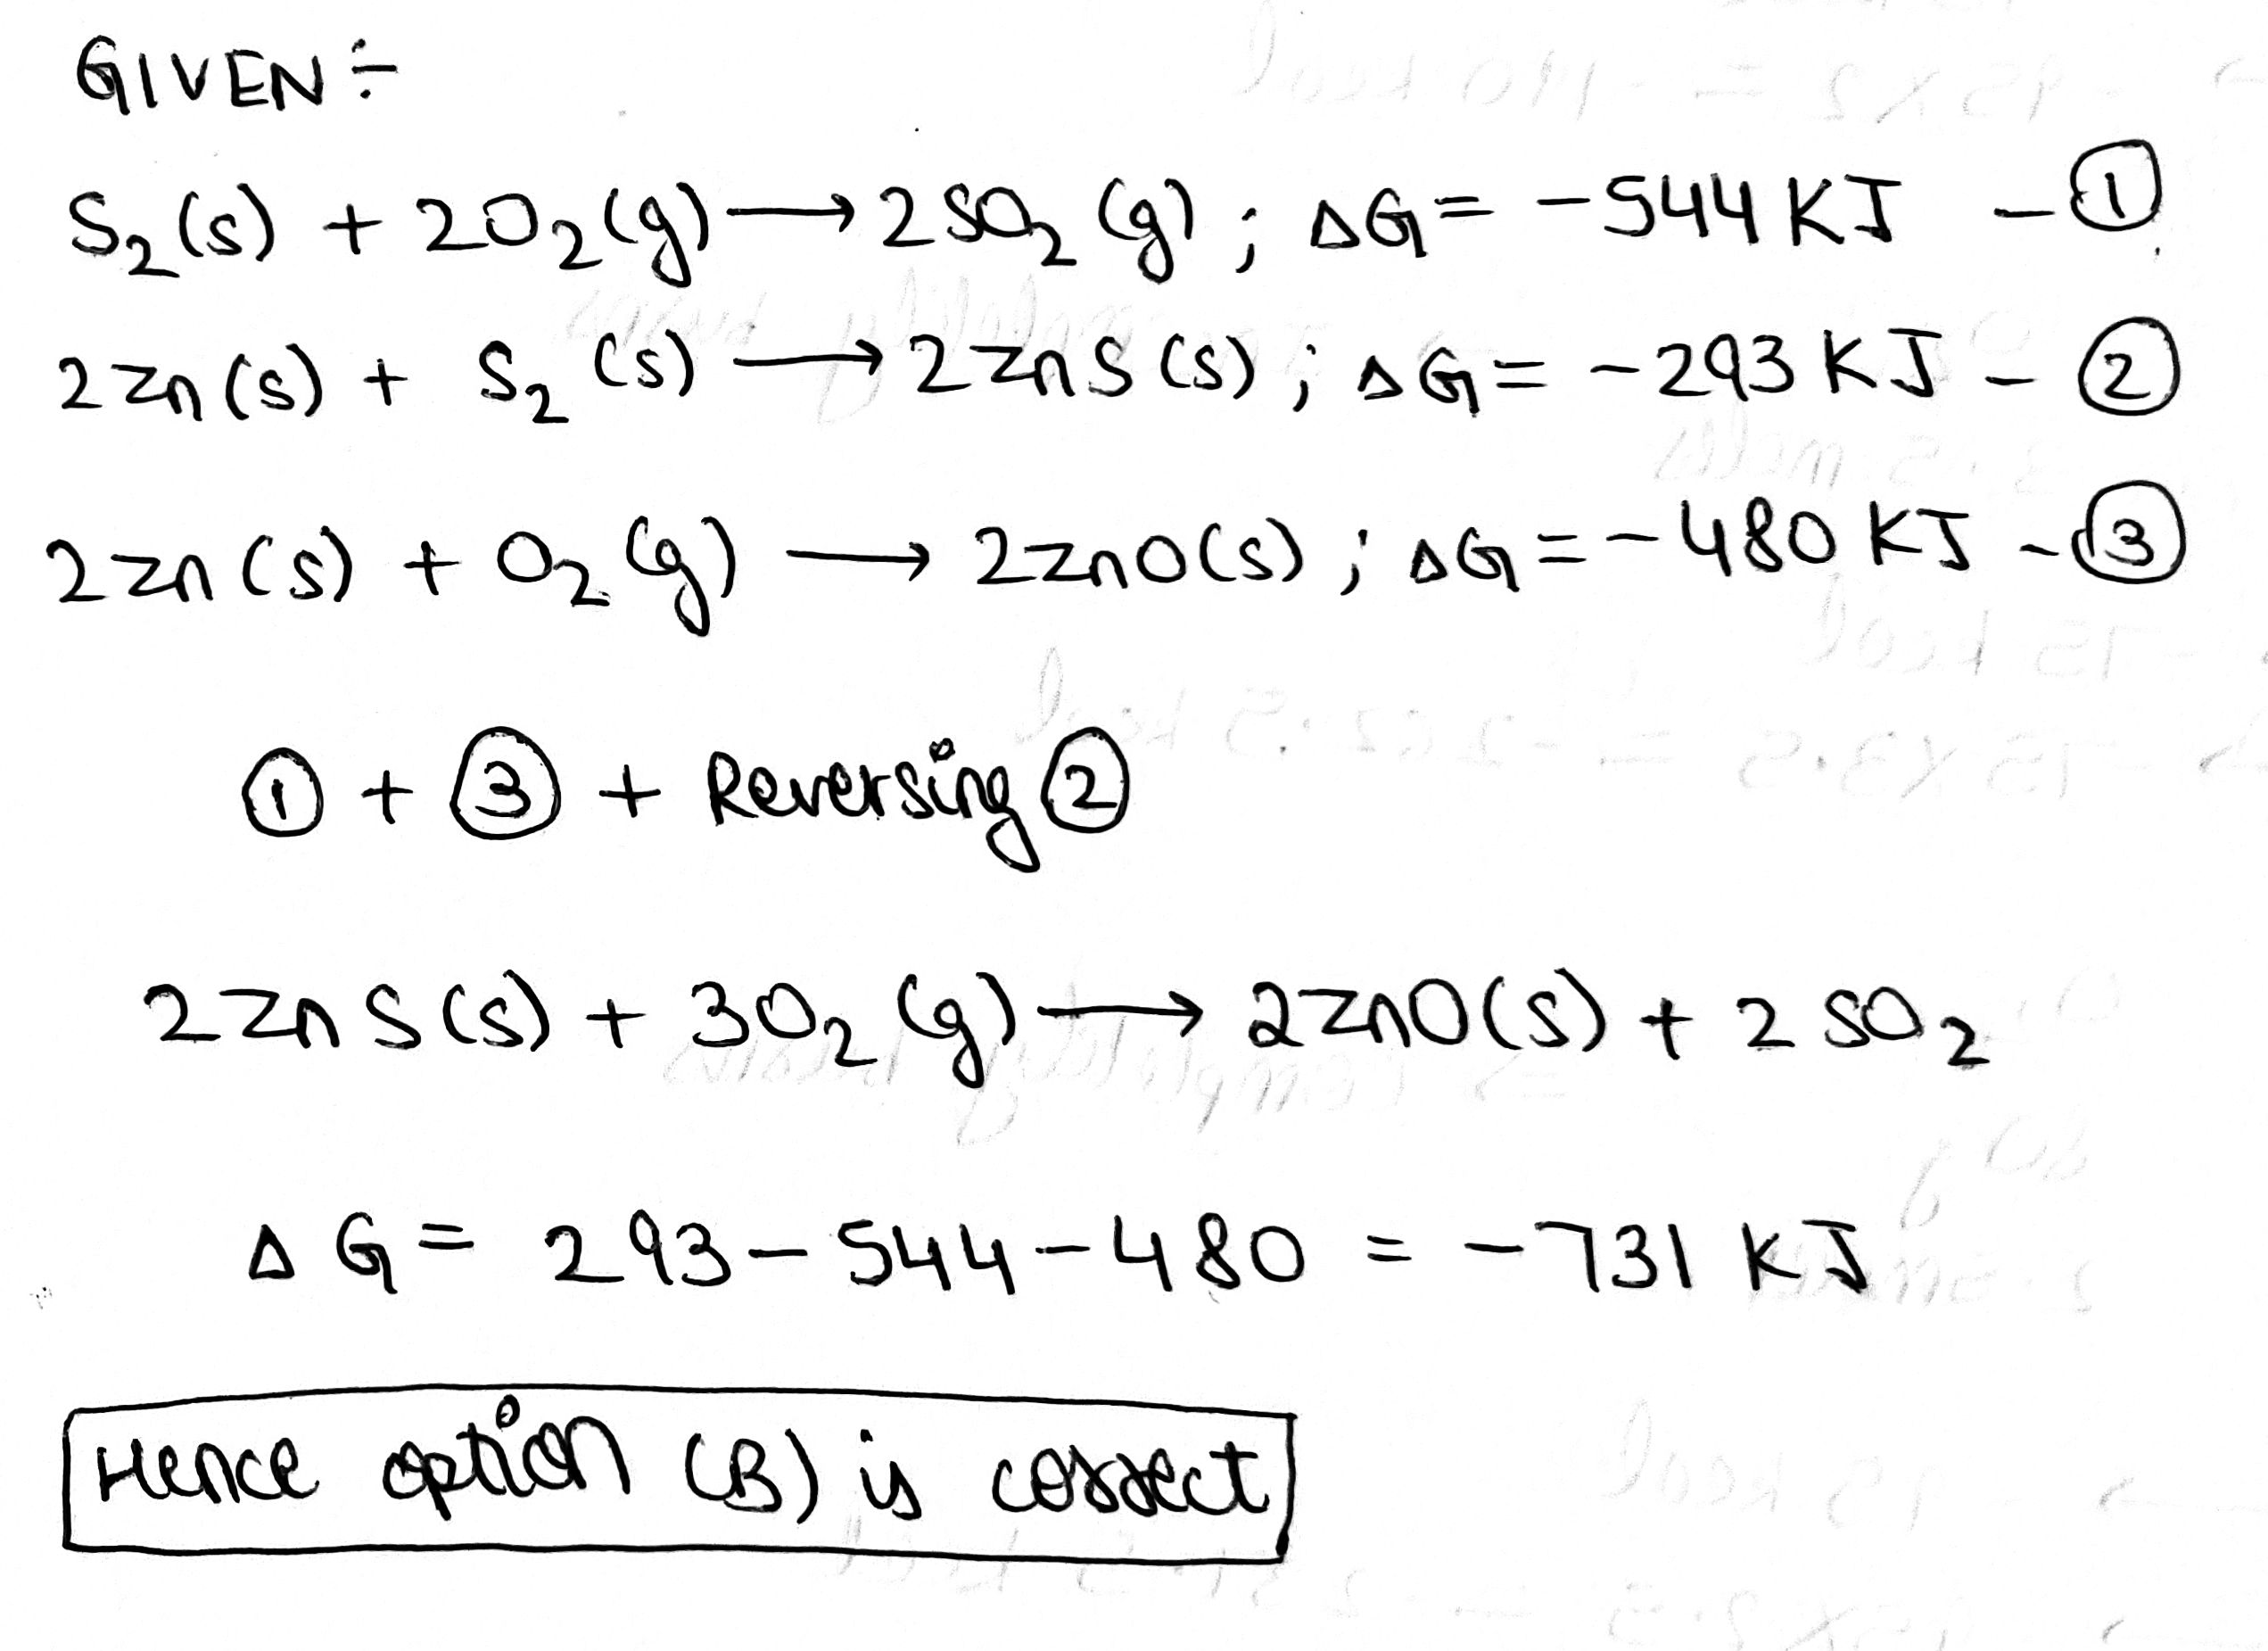 GIVEN :-
S₂(s) + 2O₂(g) → 2SO₂(g) ; ΔG = -544 KJ - ①
2Zn(s) + S₂(s) → 2ZnS(s) ; ΔG = -293 KJ - ②
2Zn(s) + O₂(g) → 2ZnO(s) ; ΔG = -480 KJ - ③
① + ③ + Reversing ②
2ZnS(s) + 3O₂(g) → 2ZnO(s) + 2SO₂
ΔG = 293 - 544 - 480 = -731 KJ
Hence option (B) is correct